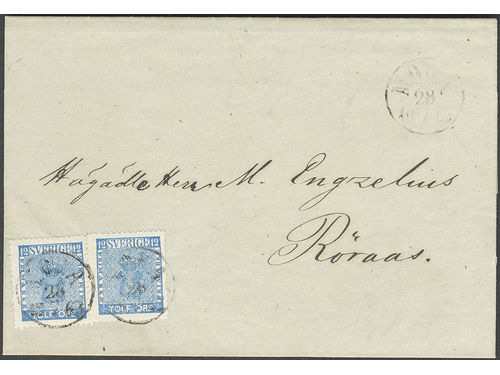 28
Högädle Herr M. Engzelius
Röraas.
12 SVERIGE 12
TOLF ÖRE
28
12 SVERIGE 12
TOLF ÖRE
28